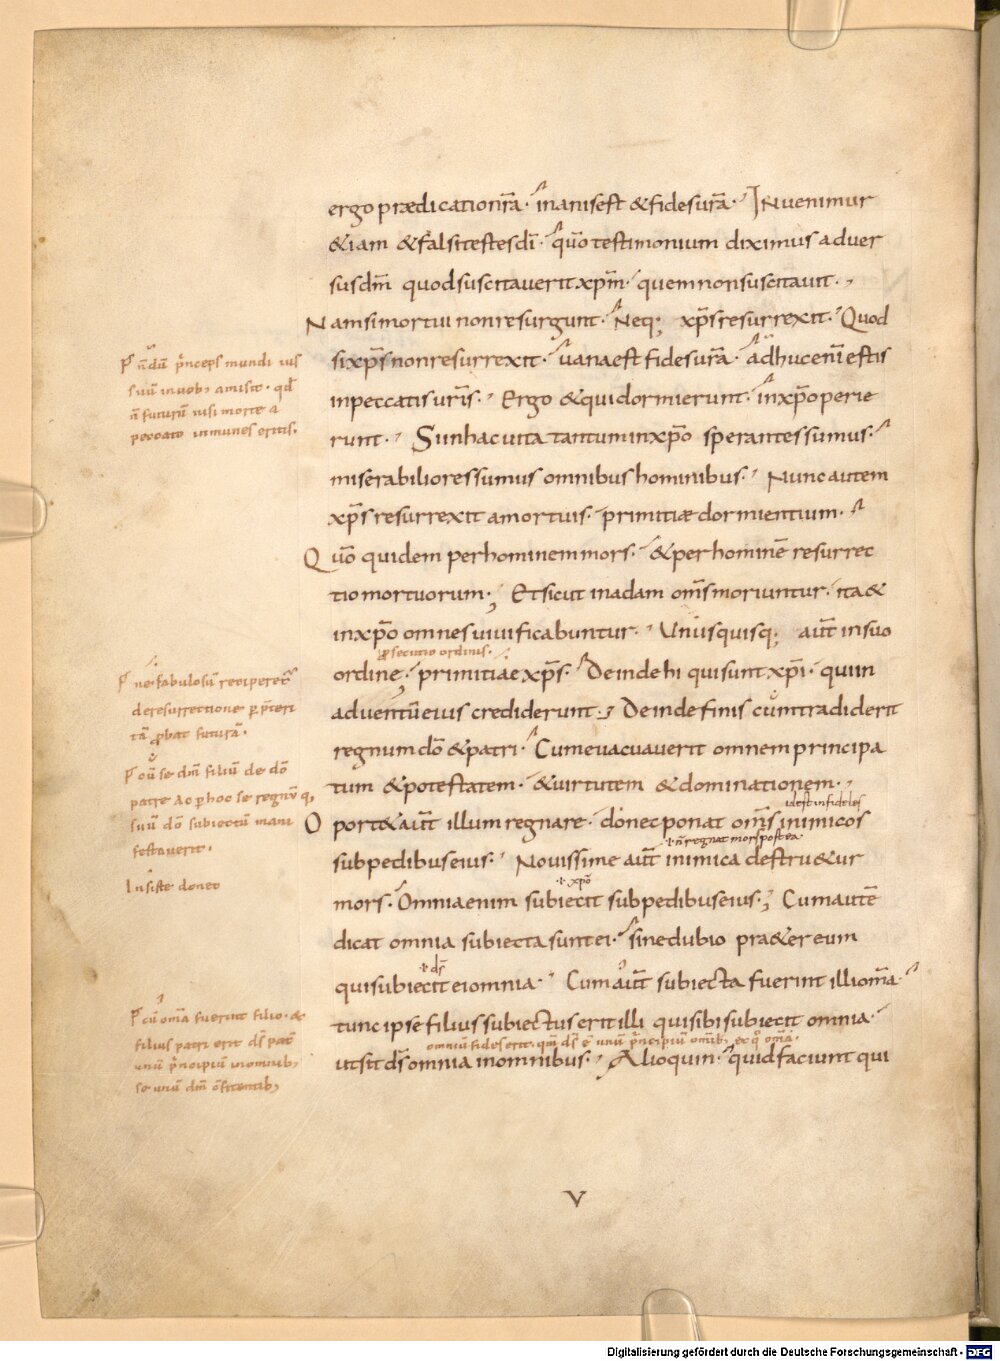 ergo prædicatio nr̄a· inanis est & fides ur̄a· Inuenimur
&iam & falsi testes dī· quō testimonium diximus aduer
sus dm̄ quod suscitauerit xp̄m· quem non suscitauit·
Nam si mortui non resurgunt· Neq; xp̄s resurrexit· Quod
si xp̄s non resurrexit· uana est fides ur̄a· adhuc enī estis
in peccatis ur̄is· Ergo & qui dormierunt· in xp̄o perie
runt· Si in hac uita tantum in xp̄o sperantes sumus·
miserabiliores sumus omnibus hominibus· Nunc autem
xp̄s resurrexit a mortuis· primitiæ dormientium·
Quō quidem per hominem mors· & per hominē resurrec
tio mortuorum; Et sicut in adam om̄s moriuntur· ita &
in xp̄o omnes uiuificabuntur· Unusquisq; aut̄ in suo
ordine; primitiae xp̄s· Deinde hi qui sunt xp̄i· qui in
aduentū eius crediderunt; Deinde finis cum tradiderit
regnum dō & patri· Cum euacuauerit omnem principa
tum & potestatem· & uirtutem & dominationem·
idest infideles
Oport& aut̄ illum regnare· donec ponat om̄s inimicos
sub pedibus eius· Nouissime aut̄ inimica destru&ur
·i· xp̄o
mors· Omnia enim subiecit sub pedibus eius; Cum autē
dicat omnia subiecta sunt ei· sine dubio præ&er eum
·i· ds̄
qui subiecit ei omnia· Cum aut̄ subiecta fuerint illi om̄a·
tunc ipse filius subiectus erit illi qui sibi subiecit omnia·
ut sit ds̄ omnia in omnibus· Alioquin· quid faciunt qui
mundi ius
suū in uob; amisit· qd̄
n̄ futurū nisi morte a
peccato inmunes eritis·
de resurrectione
patre
suū dō subiectū mani
festauerit·
Insiste donec
cū om̄a fuerint filio· &
filius patri erit ds̄ pat̄
unū
se unū dm̄
V
Digitalisierung gefördert durch die Deutsche Forschungsgemeinschaft - DFG